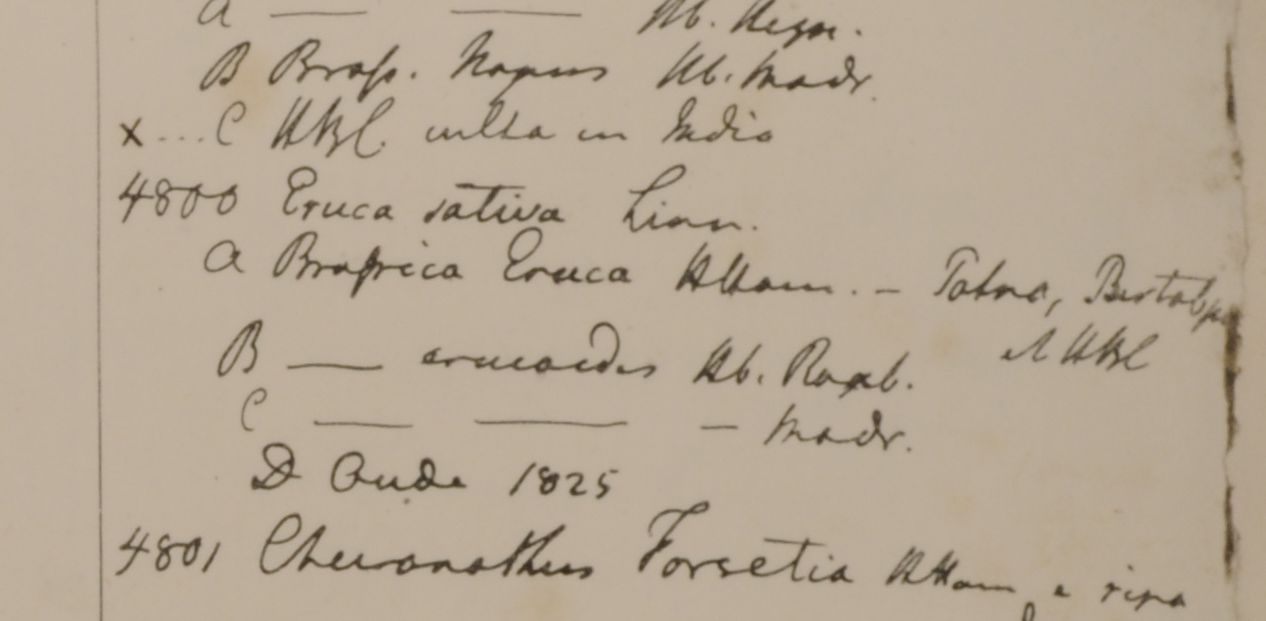 a — — Hb. Heyn.
B Brass. Napus Hb. Madr.
x ... C HBC. culta in India
4800 Eruca sativa Linn.
a Brassica Eruca HHam. - Patna,
et HBC
B — erucoides Hb. Roxb.
C — — - Madr.
D Oude 1825
4801 Cheiranthus Forsetia HHam e ripa